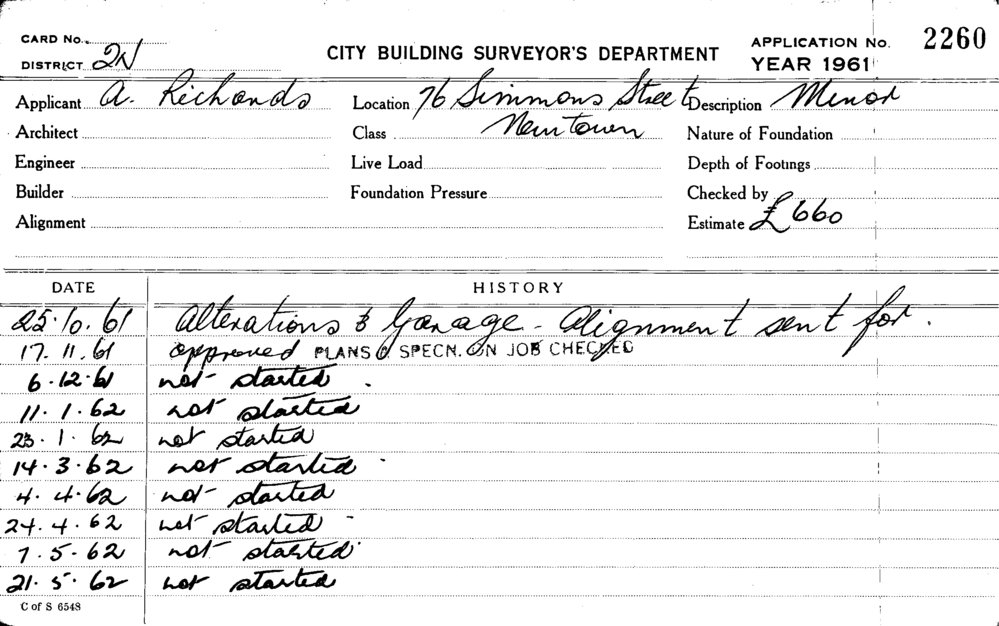 CARD No.
DISTRICT 2N
CITY BUILDING SURVEYOR'S DEPARTMENT
APPLICATION No. 2260
YEAR 1961
Applicant A. Richards
Location 76 Simmons Street
Description Minor
Architect
Class Newtown
Nature of Foundation
Engineer
Live Load
Depth of Footings
Builder
Foundation Pressure
Checked by
Alignment
Estimate £660
DATE HISTORY
25.10.61 Alterations & Garage - Alignment sent for.
17.11.61 approved PLANS & SPECN. ON JOB CHECKED
6.12.61 not started.
11.1.62 not started
23.1.62 not started
14.3.62 not started
4.4.62 not started
24.4.62 not started
7.5.62 not started
21.5.62 not started
C of S 6548